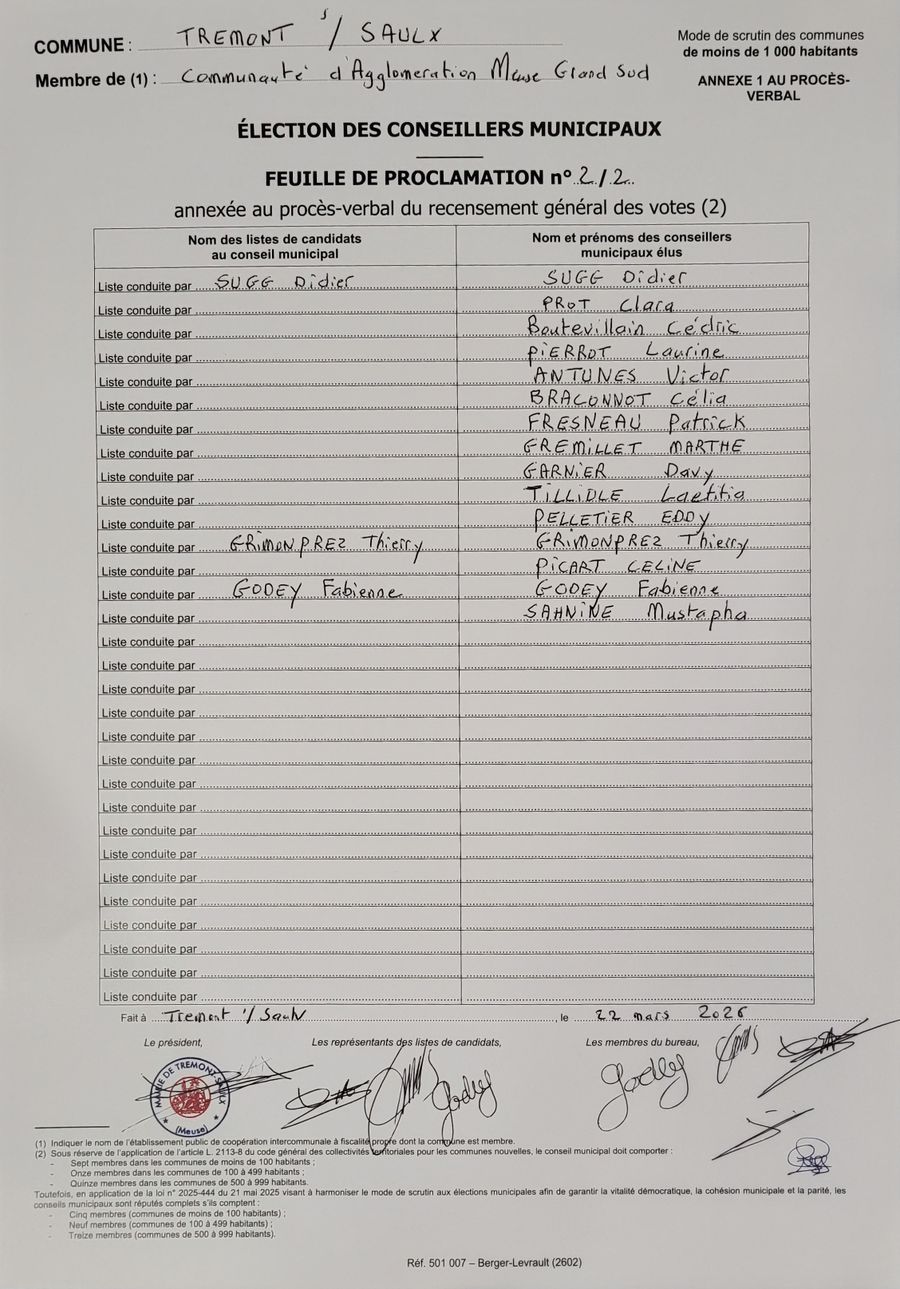 COMMUNE : TREMONT s/ SAULX
Mode de scrutin des communes
de moins de 1 000 habitants
Membre de (1) : Communauté d'Agglomeration Meuse Grand Sud
ANNEXE 1 AU PROCÈS-
VERBAL
ÉLECTION DES CONSEILLERS MUNICIPAUX
FEUILLE DE PROCLAMATION n° 2 / 2
annexée au procès-verbal du recensement général des votes (2)
Nom des listes de candidats
au conseil municipal
Nom et prénoms des conseillers
municipaux élus
Liste conduite par SUGG Didier SUGG Didier
Liste conduite par PROT Clara
Liste conduite par Boutevillain Cédric
Liste conduite par PIERROT Laurine
Liste conduite par ANTUNES Victor
Liste conduite par BRACONNOT Célia
Liste conduite par FRESNEAU Patrick
Liste conduite par GREMILLET MARTHE
Liste conduite par GARNIER Davy
Liste conduite par TILLIDLE Laetitia
Liste conduite par PELLETIER EDDY
Liste conduite par GRIMONPREZ Thierry GRIMONPREZ Thierry
Liste conduite par PICART CELINE
Liste conduite par GODEY Fabienne GODEY Fabienne
Liste conduite par SAHNINE Mustapha
Liste conduite par
Liste conduite par
Liste conduite par
Liste conduite par
Liste conduite par
Liste conduite par
Liste conduite par
Liste conduite par
Liste conduite par
Liste conduite par
Liste conduite par
Liste conduite par
Liste conduite par
Liste conduite par
Liste conduite par
Liste conduite par
Fait à Tremont s/ Saulx, le 22 mars 2026
Le président,
Les représentants des listes de candidats,
Les membres du bureau,
MAIRIE DE TREMONT-SAULX
(Meuse)
Godey
Godey
(1) Indiquer le nom de l'établissement public de coopération intercommunale à fiscalité propre dont la commune est membre.
(2) Sous réserve de l'application de l'article L. 2113-8 du code général des collectivités territoriales pour les communes nouvelles, le conseil municipal doit comporter :
- Sept membres dans les communes de moins de 100 habitants ;
- Onze membres dans les communes de 100 à 499 habitants ;
- Quinze membres dans les communes de 500 à 999 habitants.
Toutefois, en application de la loi n° 2025-444 du 21 mai 2025 visant à harmoniser le mode de scrutin aux élections municipales afin de garantir la vitalité démocratique, la cohésion municipale et la parité, les
conseils municipaux sont réputés complets s'ils comptent :
- Cinq membres (communes de moins de 100 habitants) ;
- Neuf membres (communes de 100 à 499 habitants) ;
- Treize membres (communes de 500 à 999 habitants).
Réf. 501 007 – Berger-Levrault (2602)